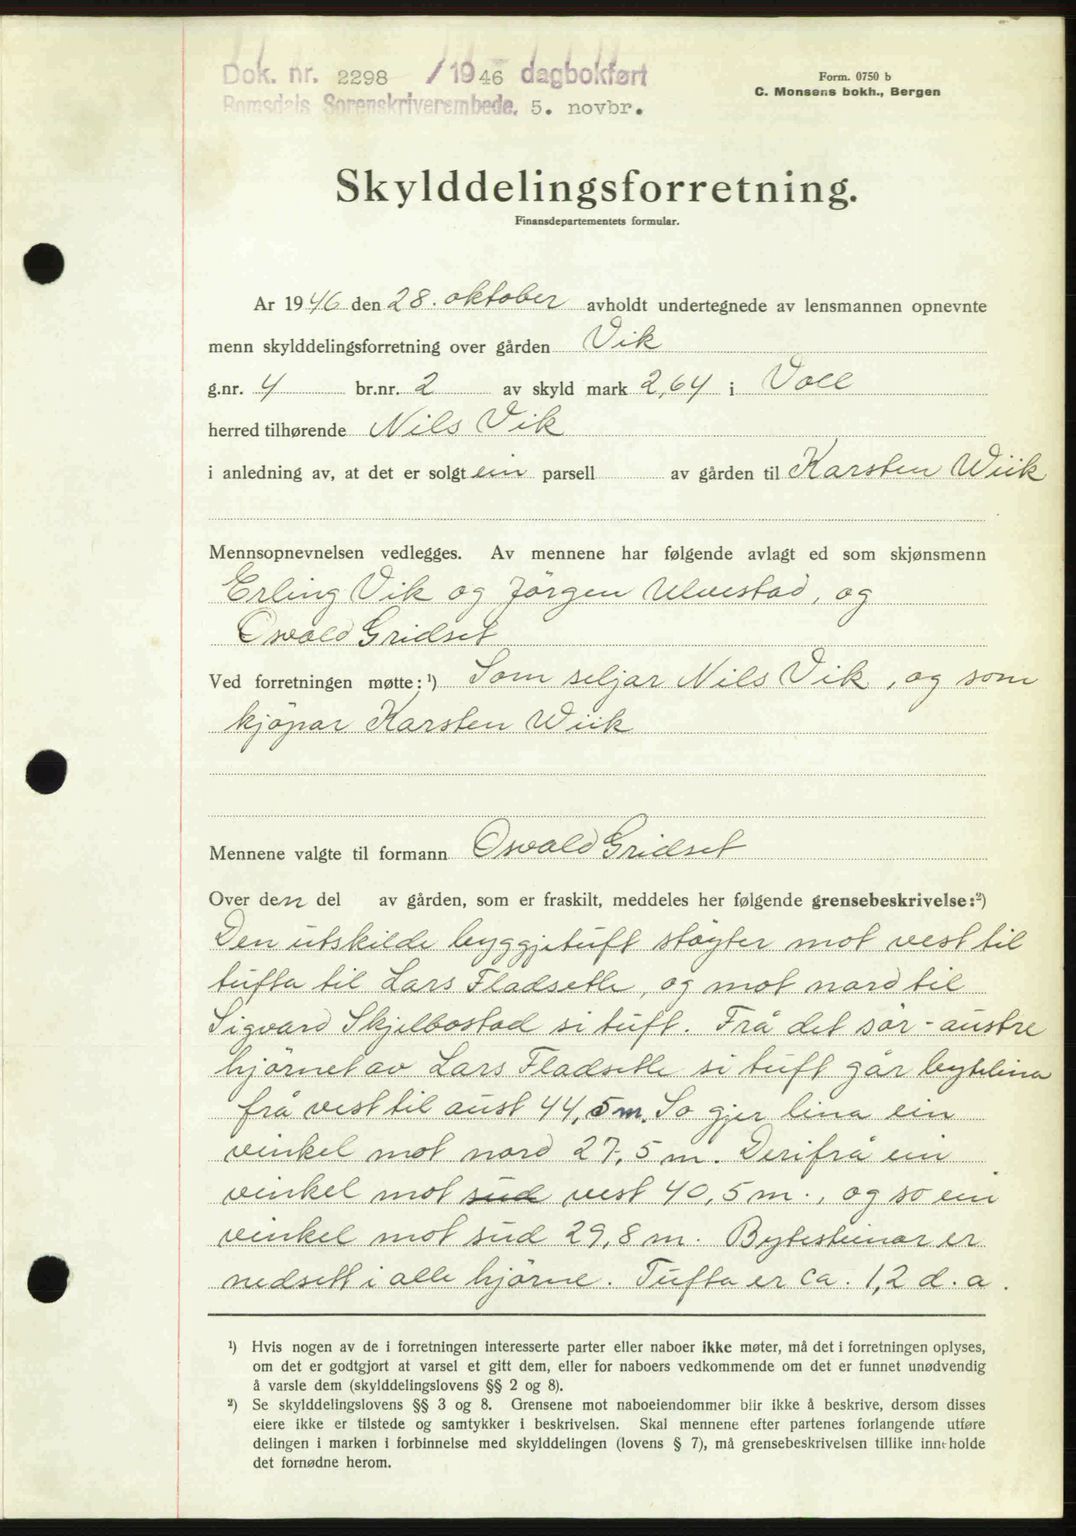 Dok. nr. 2298 /1946 dagbokført
Form. 0750 b
C. Monsens bokh., Bergen
Romsdals Sorenskriverembede, 5. novbr.
Skylddelingsforretning.
Finansdepartementets formular.
Ar 1946 den 28. oktober avholdt undertegnede av lensmannen opnevnte
menn skylddelingsforretning over gården Vik
g.nr. 4 br.nr. 2 av skyld mark 2,64 i Voll
herred tilhørende Nils Vik
i anledning av, at det er solgt ein parsell av gården til Karsten Wiik
Mennsopnevnelsen vedlegges. Av mennene har følgende avlagt ed som skjønsmenn
Erling Vik og Jörgen Ulvestad, og
Osvald Gridset
Ved forretningen møtte: ¹) Som seljar Nils Vik, og som
kjöpar Karsten Wiik
Mennene valgte til formann Osvald Gridset
Over den del av gården, som er fraskilt, meddeles her følgende grensebeskrivelse: ²)
Den utskilde byggjetuft støyter mot vest til
tufta til Lars Fladsetle, og mot nord til
Sigvard Skjelbostad si tuft. Frå det sör-austre
hjörnet av Lars Fladsetle si tuft går bytelina
frå vest til aust 44,5 m. So gjer lina ein
vinkel mot nord 27,5 m. Derifrå ein
vinkel mot sud vest 40,5 m., og so ein
vinkel mot sud 29,8 m. Bytesteinar er
nedsett i alle hjörne. Tufta er ca. 1,2 d.a.
¹) Hvis nogen av de i forretningen interesserte parter eller naboer ikke møter, må det i forretningen oplyses,
om det er godtgjort at varsel et gitt dem, eller for naboers vedkommende om det er funnet unødvendig
å varsle dem (skylddelingslovens §§ 2 og 8).
²) Se skylddelingslovens §§ 3 og 8. Grensene mot naboeiendommer blir ikke å beskrive, dersom disses
eiere ikke er tilstede og samtykker i beskrivelsen. Skal mennene efter partenes forlangende utføre
delingen i marken i forbinnelse med skylddelingen (lovens § 7), må grensebeskrivelsen tillike inneholde
det fornødne herom.